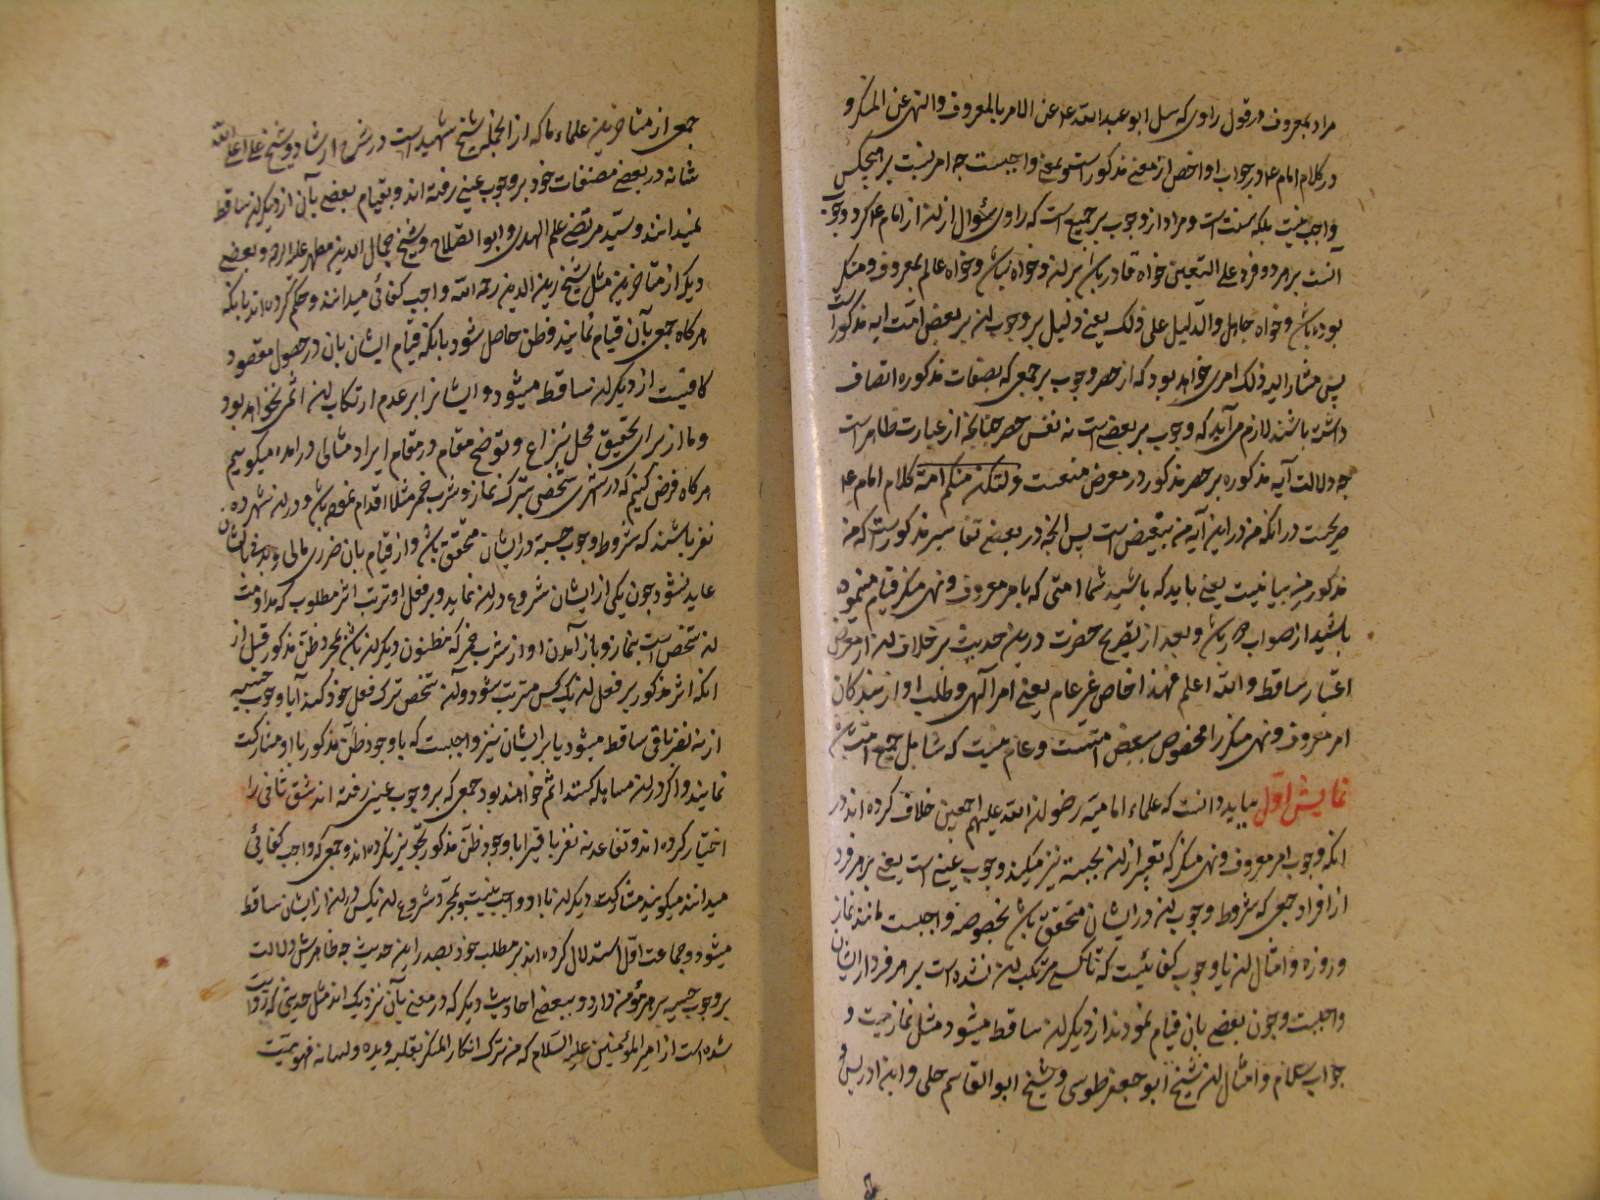 مراد بمعروف در قول راوی که سئل ابو عبد الله ع عن الامر بالمعروف والنهی عن المنکر و
در کلام امام ع در جواب او اخص از معنی مذکور است و بمعنی واجبست چه امر بسنت بر هیچکس
واجب نیست بلکه سنت است و مراد از وجوب بر جمیع است که راوی سؤال از ان از امام ع کرد وجوب
آنست بر هر دو فرد علی التعیین خواه قادر باشد بر ان و خواه نباشد و خواه عالم بمعروف و منکر
بوده باشد و خواه جاهل والدلیل علی ذلک یعنی دلیل بر وجوب ان بر بعض امت ایه مذکور است
پس مشار الیه ذلک امری خواهد بود که از حصر وجوب بر جمعی که بصفات مذکوره اتصاف
داشته باشند لازم می‌آید که وجوب بر بعض است نه نفس حصر چنانچه از عبارت ظاهر است
چه دلالت آیه مذکوره بر حصر مذکور در معرض منعست ولتکن منکم امة کلام امام ع
صریحست در انکه من در این آیه من تبعیض است پس انچه در بعضی تفاسیر مذکور است که من
مذکور من بیانیست یعنی باید که باشید شما امتی که بامر معروف و نهی منکر قیام مینموده
باشید از صواب دور باشد و بعد از تصریح حضرت در این حدیث بر خلاف ان از معرض
اعتبار ساقط والله اعلم فهذا خاص غیر عام یعنی امر آلهی و طلب او از بندکان
امر معروف و نهی منکر را مخصوص ببعض امتست و عام نیست که شامل جمیع امت باشد
نمایش اول بباید دانست که علماء امامیه رضوان الله علیهم اجمعین خلاف کرده‌اند در
انکه وجوب امر معروف و نهی منکر که تعبیر از ان بحسبة نیز میکنند وجوب عینی است یعنی بر هر فرد
از افراد جمعی که شروط وجوب ان در ایشان متحقق باشد بخصوصه واجبست مانند نماز
و روزه و امثال ان یا وجوب کفائیست که تا کسی مرتکب ان نشده است بر هر فرد از ایشان
واجبست و چون بعضی بان قیام نمودند از دیکران ساقط میشود مثل نماز میت و
جواب سلام و امثال ان شیخ ابو جعفر طوسی و شیخ ابو القاسم حلی و ابن ادریس و
جمعی از متاخرین علماء ما که از انجمله شیخ شهید است در شرح ارشاد و شیخ علی اعلی الله
شانه در بعضی مصنفات خود بر وجوب عینی رفته‌اند و بقیام بعضی بآن از دیکران ساقط
نمیدانند و سید مرتضی علم الهدی و ابو الصلاح و شیخ جمال الدین مطهر علیه الرحمه و بعضی
دیکر از متاخرین مثل شیخ زین الدین رحمه الله واجب کفائی میدانند و حکم کرده‌اند بانکه
هرکاه جمعی بآن قیام نمایند و ظن حاصل شود بانکه قیام ایشان بان در حصول مقصود
کافیست از دیکران ساقط میشود و ایشانرا بر عدم ارتکاب ان اثمی نخواهد بود
و ما از برای تحقیق محل نزاع و توضیح مقام در مقام ایراد مثالی درامده میکوییم
هرکاه فرض کنیم که در شهری شخصی بترک نماز و شرب خمر مثلا اقدام نموده باشد و در ان شهر ده
نفر باشند که شروط وجوب حسبة در ایشان متحقق باشد و از قیام بان ضرری مالی و بدنی بایشان
عاید نشود چون یکی از ایشان شروع در ان نماید و بر فعل او ترتب اثر مطلوب که مداومت
ان شخص است بنماز و باز آمدن او از شرب خمر که مظنون دیکران باشد بمجرد ظن مذکور قبل از
انکه اثر مذکور بر فعل ان یک کس مترتب شود و آن شخص ترک فعل خود کند آیا وجوب حسبه
از نه نفر باقی ساقط میشود یا بر ایشان نیز واجبست که با وجود ظن مذکور با او مشارکت
نمایند و اکر در ان مساهله کنند اثم خواهند بود جمعی که بر وجوب عینی رفته‌اند شق ثانی را
اختیار کرده‌اند و تقاعد نه نفر باقی را با وجود ظن مذکور تجویز نکرده‌اند و جمعی که واجب کفائی
میدانند میکویند مشارکت دیکران با او واجب نیست و بمجرد شروع ان یکس در ان از ایشان ساقط
میشود و جماعت اول استدلال کرده‌اند بر مطلب خود بصدر این حدیث چه ظاهرش دلالت
بر وجوب حسبه بر هر مؤمن دارد و ببعضی احادیث دیکر که در معنی بآن نزدیک‌اند مثل حدیثی که روایت
شده است از امیر المؤمنین علیه السلام که من ترک انکار المنکر بقلبه ویده ولسانه فهو میت